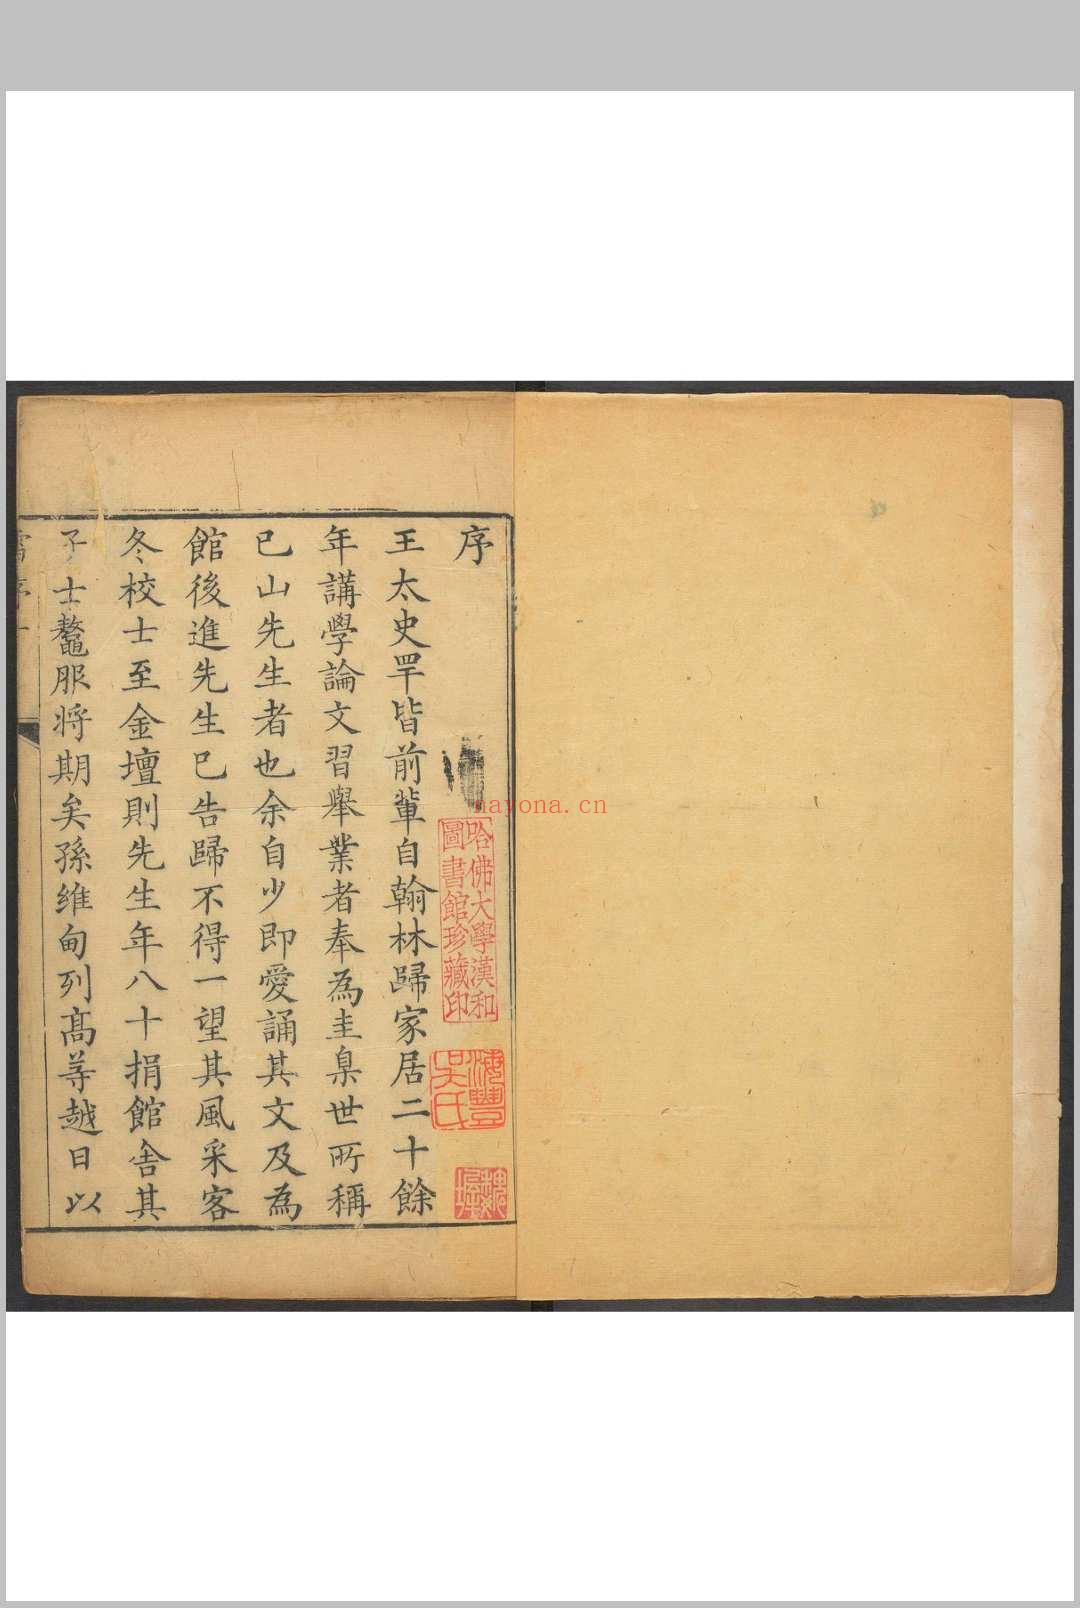 序
王太史罕皆前輩自翰林歸家居二十餘
年講學論文習舉業者奉為圭臬世所稱
已山先生者也余自少即愛誦其文及為
館後進先生已告歸不得一望其風采客
冬校士至金壇則先生年八十捐館舍其
子士鼇服將期矣孫維甸列高等越日以
序一
哈佛大學漢和
圖書館珍藏印
海豐
吳氏
nayona.cn